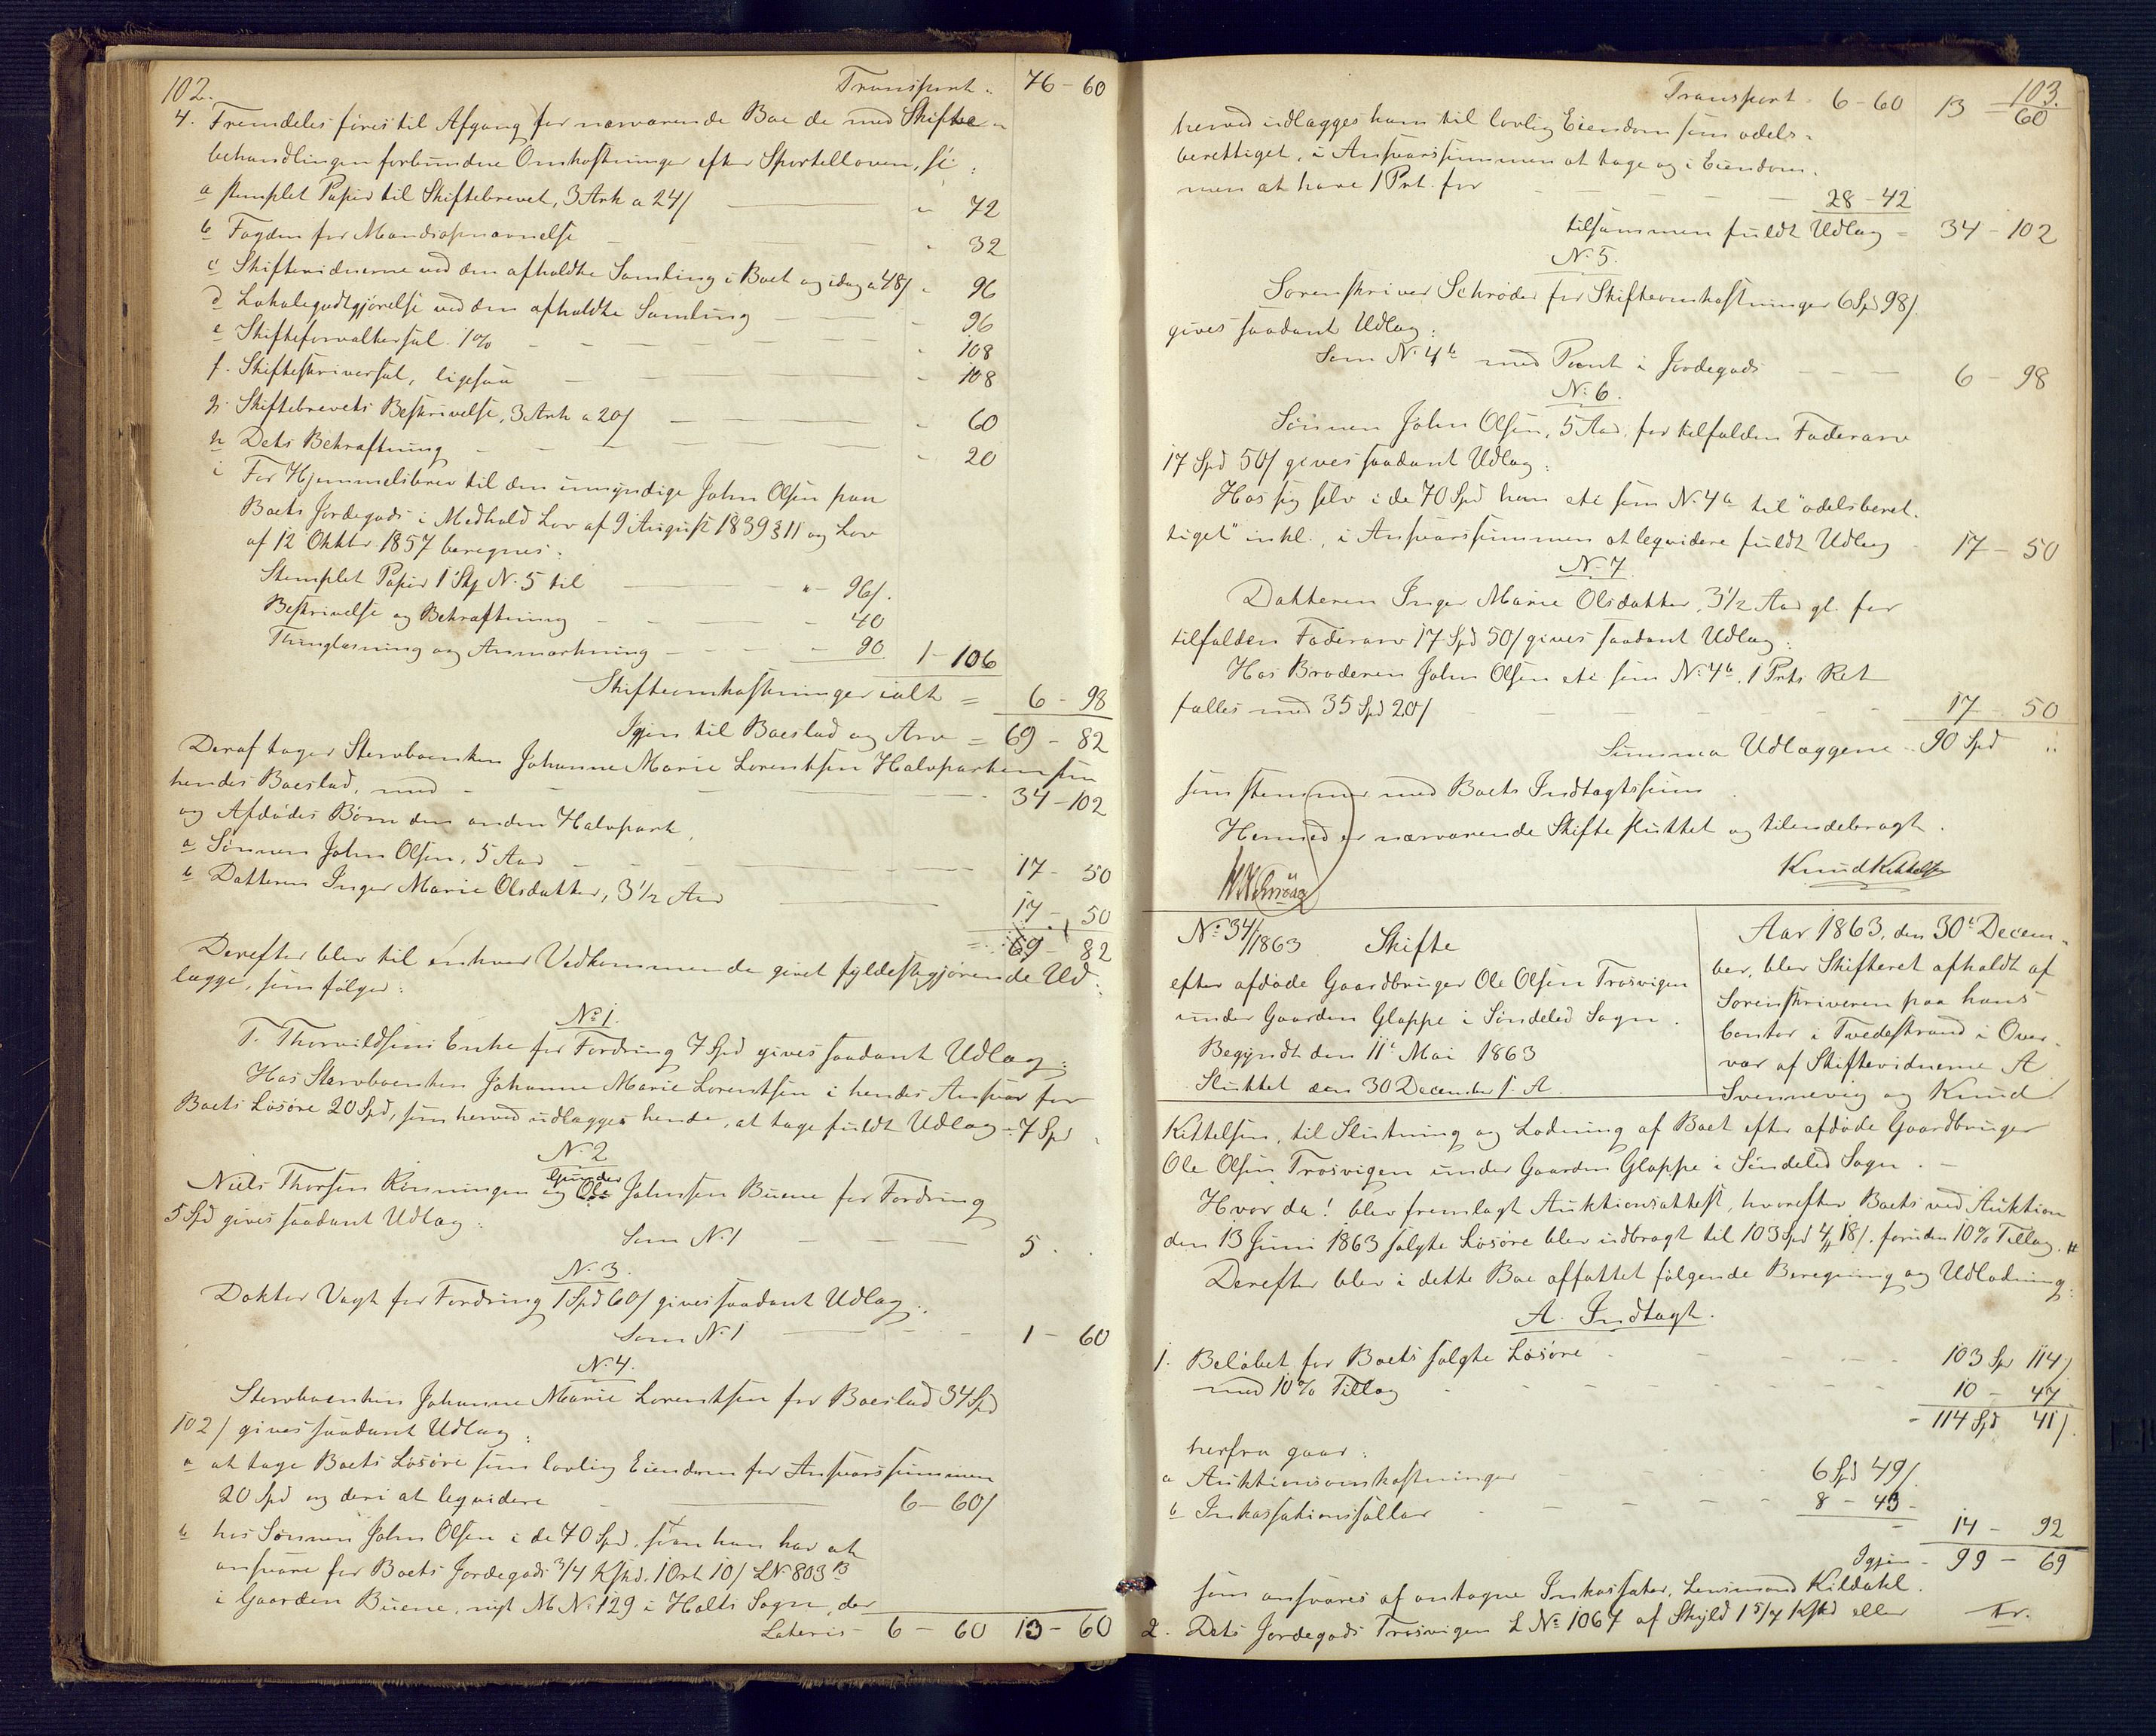 102.
Transport " 76 - 60
4. Fremdeles føres til Afgang for nærværende Boe de med Skifte=
behandlingen forbundne Omkostninger efter Sportelloven, s:
a stemplet Papir til Skiftebrevet, 3 Ark a 24/ " 72
b Fogden for Mandsopnævnelse " 32
c Skiftevidnerne ved den afholdte Samling i Boet og idag a 48/ " 96
d Lokalegodtgjørelse ved den afholdte Samling - 96
e Skifteforvaltersal. 1% " 108
f. Skifteskriversal, ligesaa " 108
g. Skiftebrevets Beskrivelse, 3 Ark a 20/ " 60
h Dets Bekræftning " 20
i For Hjemmelsbrev til den umyndige John Olsen paa
Boets Jordegods i Medhold Lov af 9 August 1839 § 11 og Lov
af 12 Oktbr. 1857 beregnes:
Stemplet Papir 1 Skp N. 5 til " - 96/.
Beskrivelse og Bekræftning - 40
Thinglæsning og Anmærkning - 90 1 - 106
Skifteomkostninger ialt = 6 - 98
Igjen til Boeslod og Arv = 69 - 82
Deraf tager Stervboenken Johanne Marie Lorentsen Halvparten som
hendes Boeslod, med 34 - 102
og Afdødes Børn den anden Halvpart,
a Sønnen John Olsen, 5 Aar 17 - 50
b Datteren Inger Marie Olsdatter, 3 1/2 Aar 17 - 50
69 - 82
Derefter blev til enhver Vedkommende givet fyldestgjørende Ud=
lægge, som følger:
No 1.
T. Thorvildsens Enke for Fordring 7 Spd gives saadant Udlæg:
Hos Stervboenken Johanne Marie Lorentsen i hendes Ansvar for
Boets Løsøre 20 Spd, som herved udlægges hende, at tage fuldt Udlæg = 7 Spd "
N. 2
Niels Thorsen Rønningen og Gunder Johnsen Buene for Fordring
5 Spd gives saadant Udlæg:
Som N. 1 5 . .
N. 3.
Doktor Vogt for Fordring 1 Spd 60/ gives saadant Udlæg:
Som N. 1 1 - 60
N. 4.
Stervboenken Johanne Marie Lorentsen for Boeslod 34 Spd
102/ gives saadant Udlæg:
a at tage Boets Løsøre som lovlig Eiendom for Ansvarssummen
20 Spd og deri at leqvidere 6 - 60/
b hos Sønnen John Olsen i de 70 Spd, som han har at
ansvare for Boets Jordegods 3/4 Kskd. 1 Ort 10/ LN. 803 B
i Gaarden Buene, nyt M. N. 129 i Holts Sogn, der
Lateris - 6 - 60 13 - 60
103.
Transport - 6 - 60 13 - 60
herved udlægges ham til lovlig Eiendom som odels=
berettiget, i Ansvarssummen at tage og i Eiendom=
men at have 1 Prt. for
28 - 42
tilsammen fuldt Udlæg = 34 - 102
N. 5.
Sorenskriver Schrøder for Skifteomkostninger 6 Spd 98/.
gives saadant Udlæg:
Som N. 4 b med Pant i Jordegods 6 - 98
N. 6.
Sønnen John Olsen, 5 Aar, for tilfalden Fædrearv
17 Spd 50/ gives saadant Udlæg:
Hos sig selv i de 70 Spd han etc som N. 4 b til "odelsberet=
tiget" inkl., i Ansvarssummen at leqvidere fuldt Udlæg 17 - 50
N. 7.
Datteren Inger Marie Olsdatter, 3 1/2 Aar gl. for
tilfalden Faderarv 17 Spd 50/ gives saadant Udlæg:
Hos Broderen John Olsen etc som N. 4 b, 1 Prts Ret
fælles med 35 Spd 20/ 17 - 50
Summa Udlæggene - 90 Spd "
som stemmer med Boets Indtægtssum
Hermed er nærværende Skifte sluttet og tilendebragt.
Knud Kittelsen
No 34/1863 Skifte
efter afdøde Gaardbruger Ole Olsen Trosvigen
under Gaarden Gloppe i Søndeled Sogn.
Begyndt den 11t Mai 1863
Sluttet den 30 December s. A.
Aar 1863, den 30t Decem=
ber, blev Skifteret afholdt af
Sorenskriveren paa hans
Contor i Tvedestrand i Over=
vær af Skiftevidnerne A
Svennevig og Knud
Kittelsen, til Slutning og Lodning af Boet efter afdøde Gaardbruger
Ole Olsen Trosvigen under Gaarden Gloppe i Søndeled Sogn.
Hvor da! blev fremlagt Auktionsattest, hvorefter Boets ved Auktion
den 13 Juni 1863 solgte Løsøre blev udbragt til 103 Spd 4 # 18/. foruden 10% Tillæg. #
Derefter blev i dette Boe affattet følgende Beregning og Udlodning:
A. Indtægt.
1. Beløbet for Boets solgte Løsøre 103 Sp 114/
med 10% Tillæg 10 - 47
- 114 Spd 41/.
herfra gaar:
a Auktionsomkostninger 6 Spd 49/.
b Inkassationssallær 8 - 43 -
14 - 92
Igjen - 99 - 69
som ansvares af antagne Inkassator, Lensmand Kildahl.
2. Dets Jordegods Trosvigen L No 1067 af Skyld 1 5/7 Kskd eller Tr.